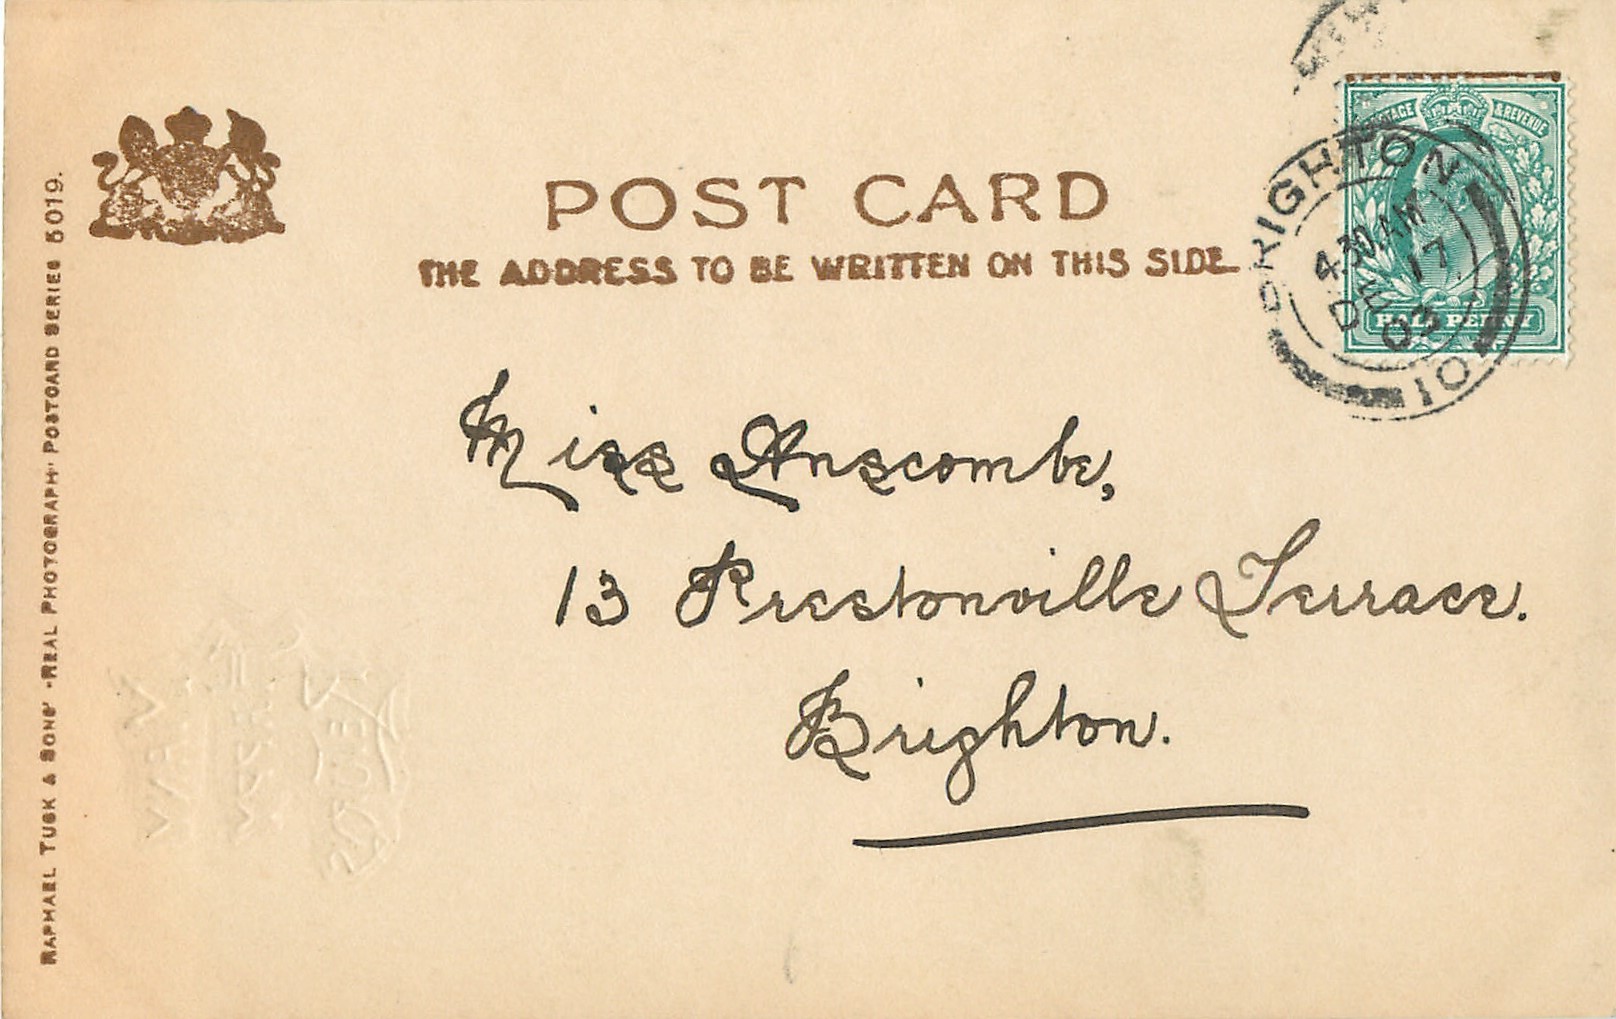 POST CARD
THE ADDRESS TO BE WRITTEN ON THIS SIDE
POSTAGE & REVENUE
HALF PENNY
BRIGHTON
4.30 AM
DE 17
03
10
Miss Anscombe,
13 Prestonville Terrace.
Brighton.
RAPHAEL TUCK & SONS' "REAL PHOTOGRAPH" POSTCARD SERIES 5019.